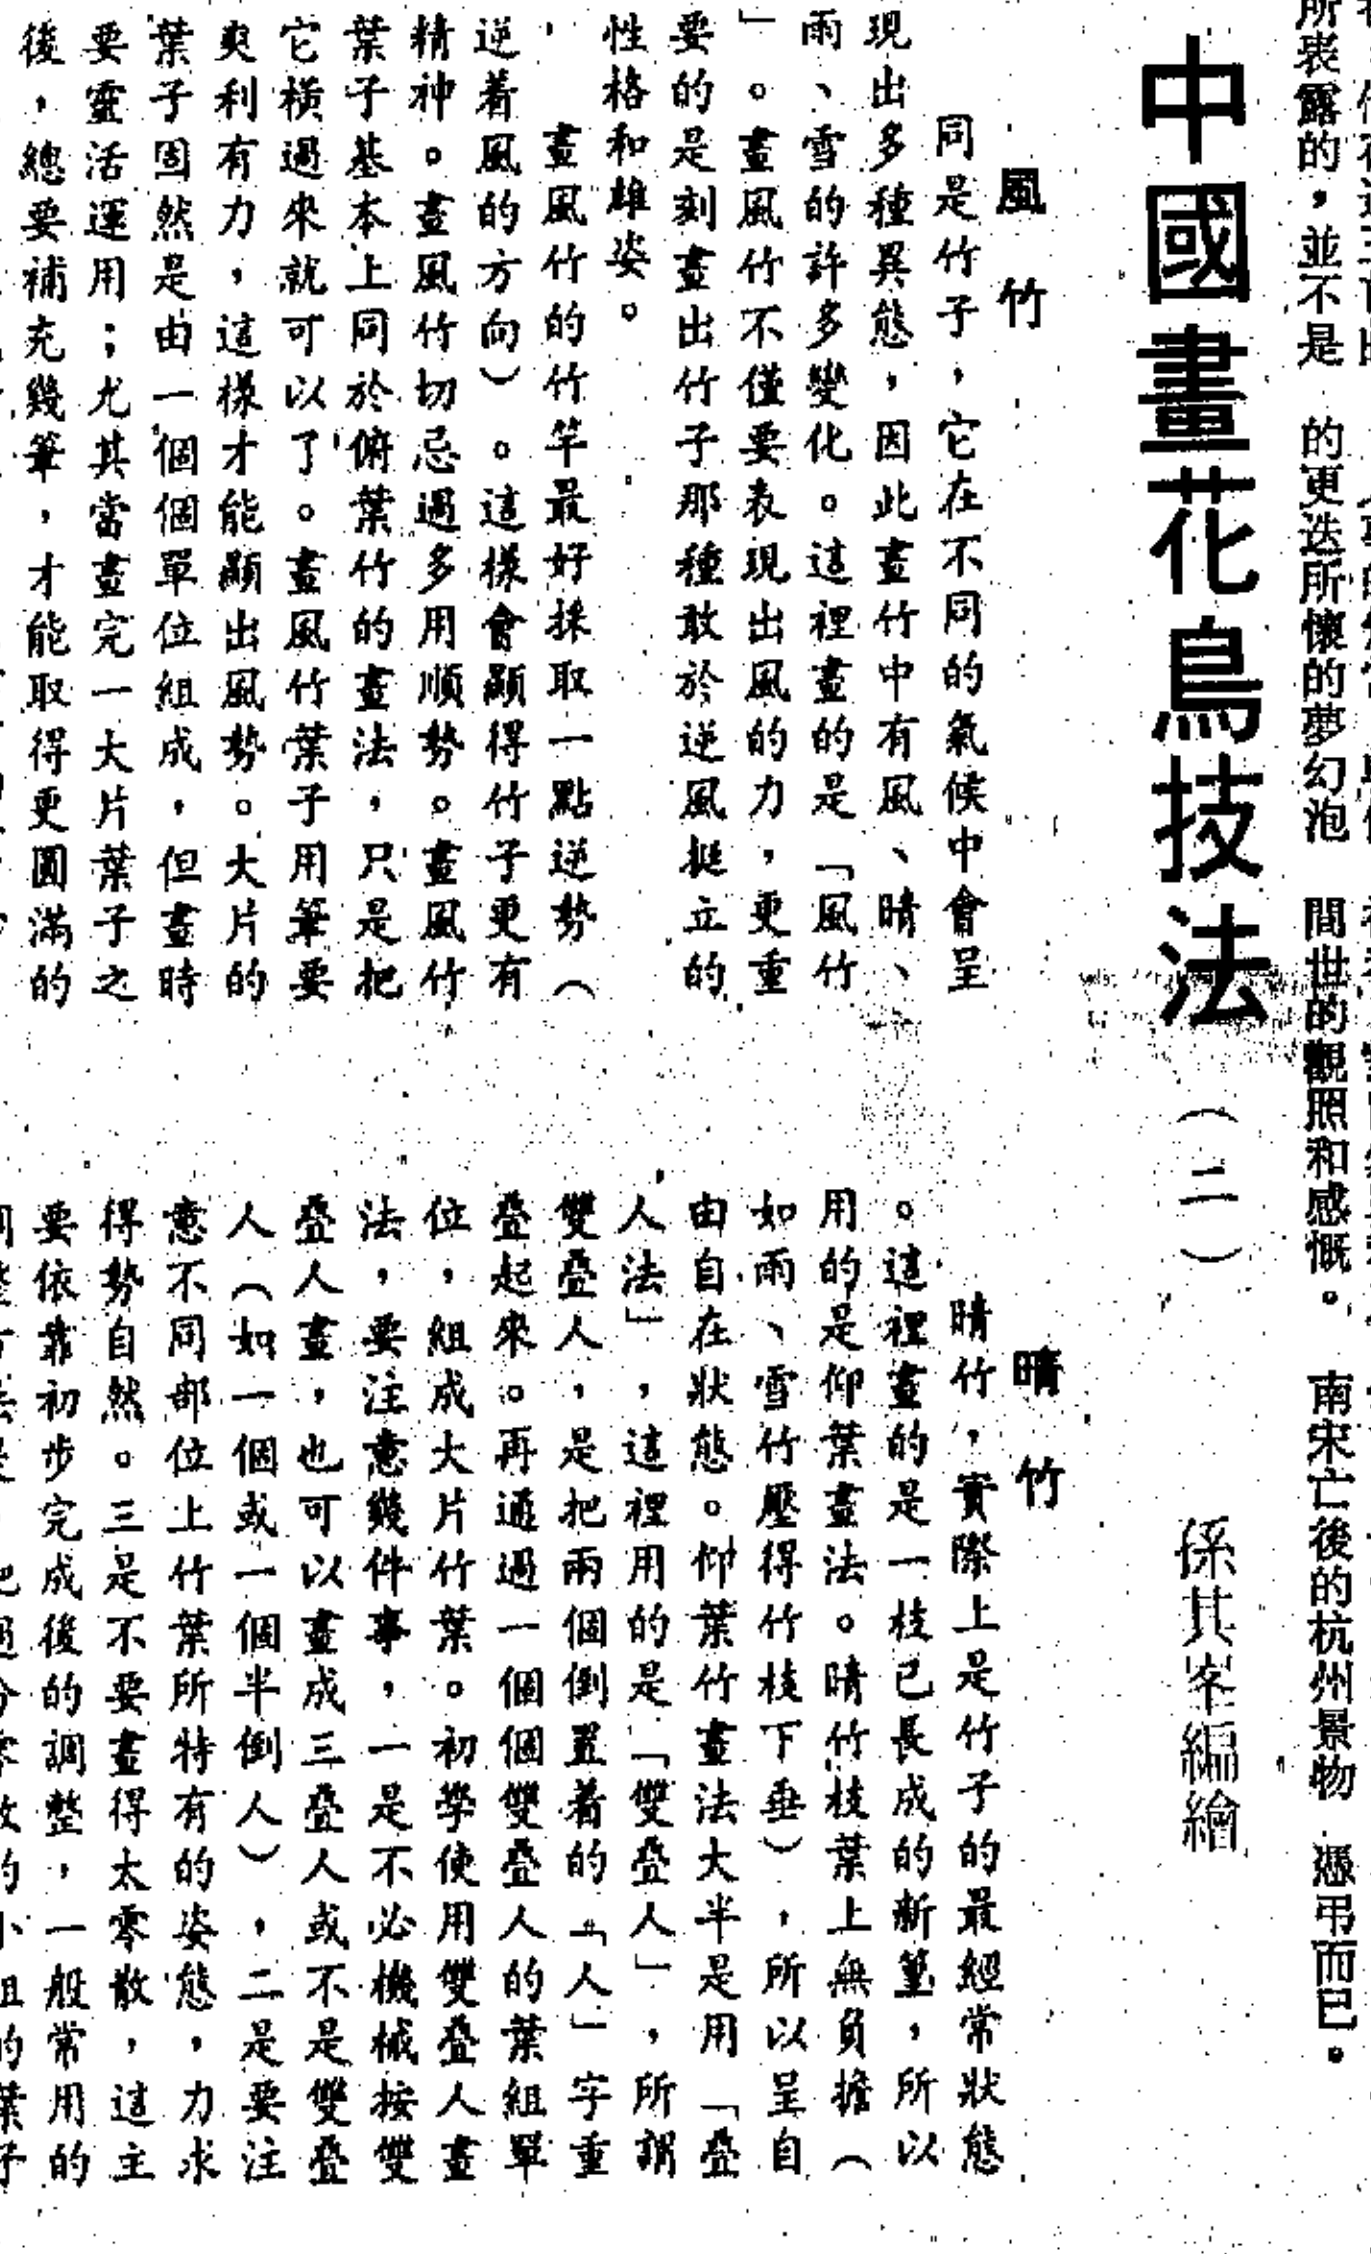 所表露的，並不是　的更迭所懷的夢幻泡　間世的觀照和感慨。　南宋亡後的杭州景物　憑弔而已。
中國畫花鳥技法（二）　孫其峯編繪
風竹
同是竹子，它在不同的氣候中會呈
現出多種異態，因此畫竹中有風、晴、
雨、雪的許多變化。這裡畫的是「風竹
」。畫風竹不僅要表現出風的力，更重
要的是刻畫出竹子那種敢於逆風挺立的
性格和雄姿。
畫風竹的竹竿最好採取一點逆勢（
逆着風的方向）。這樣會顯得竹子更有
精神。畫風竹切忌過多用順勢。畫風竹
葉子基本上同於俯葉竹的畫法，只是把
它橫過來就可以了。畫風竹葉子用筆要
爽利有力，這樣才能顯出風勢。大片的
葉子固然是由一個個單位組成，但畫時
要靈活運用；尤其當畫完一大片葉子之
後，總要補充幾筆，才能取得更圓滿的
晴竹
晴竹，實際上是竹子的最經常狀態
。這裡畫的是一枝已長成的新篁，所以
用的是仰葉畫法。晴竹枝葉上無負擔（
如雨、雪竹壓得竹枝下垂），所以呈自
由自在狀態。仰葉竹畫法大半是用「疊
人法」，這裡用的是「雙疊人」，所謂
雙疊人，是把兩個倒置着的「人」字重
疊起來。再通過一個個雙疊人的葉組單
位，組成大片竹葉。初學使用雙疊人畫
法，要注意幾件事，一是不必機械按雙
疊人畫，也可以畫成三疊人或不是雙疊
人（如一個或一個半倒人），二是要注
意不同部位上竹葉所特有的姿態，力求
得勢自然。三是不要畫得太零散，這主
要依靠初步完成後的調整，一般常用的